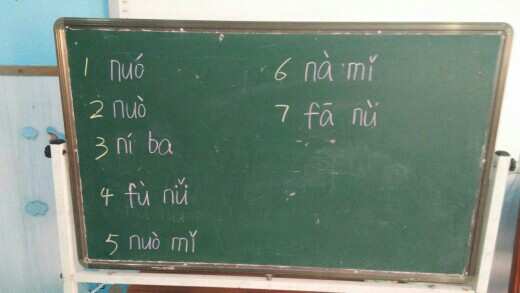 1 nuó
2 nuò
3 ní ba
4 fù nǚ
5 nuò mǐ
6 nà mǐ
7 fā nǜ